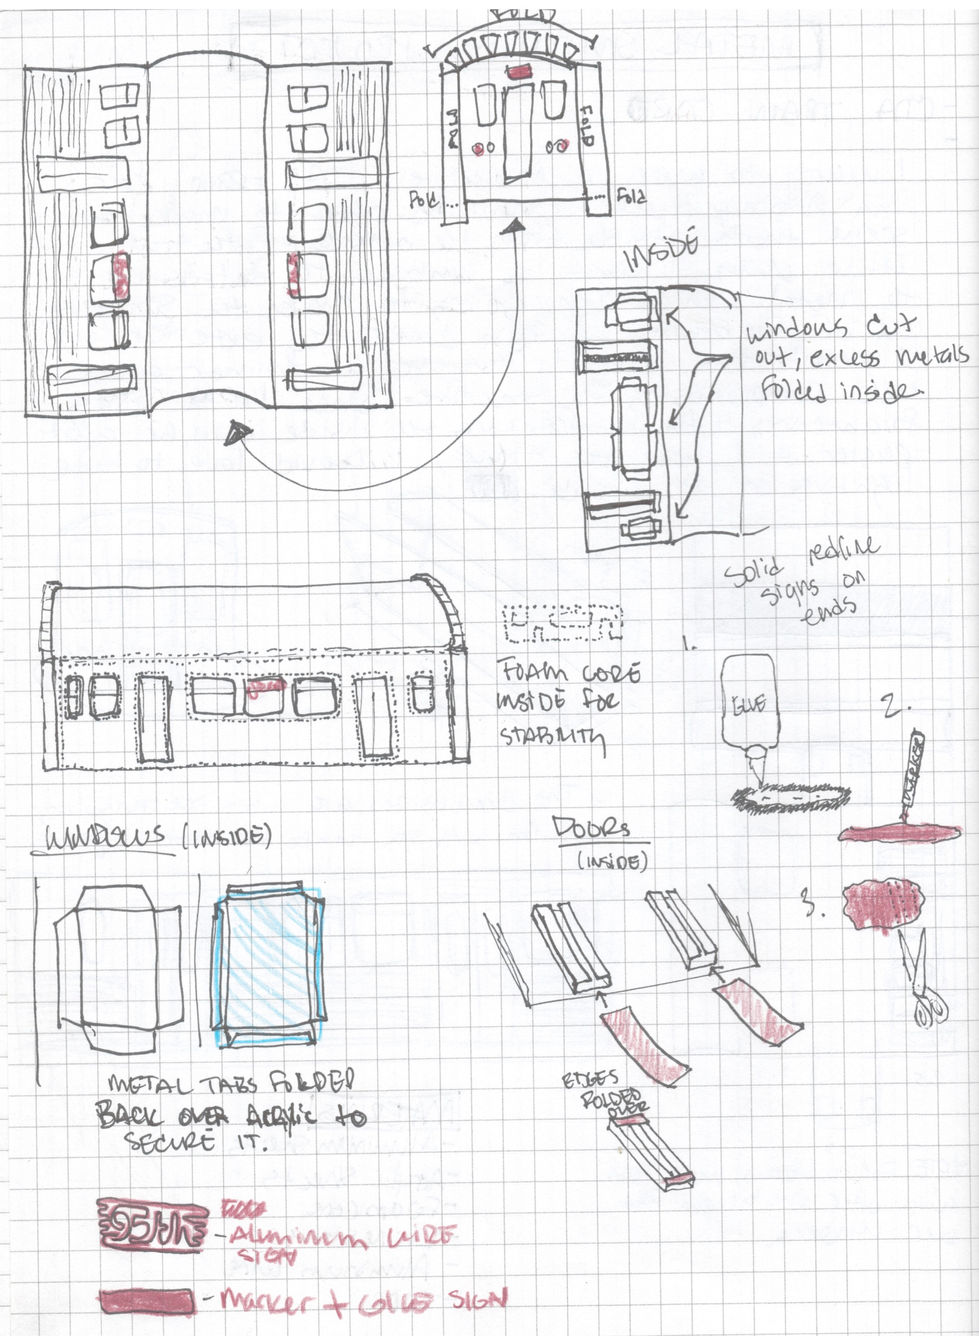 FOLD
FOLD
Fold
Fold
INSIDE
windows cut
out, excess metals
Folded inside.
solid redline
signs on
ends
FOAM CORE
INSIDE FOR
STABILITY
1.
GLUE
2.
MARKER
3.
WINDOWS (INSIDE)
DOORS
(INSIDE)
METAL TABS FOLDED
BACK OVER ACRYLIC TO
SECURE IT.
EDGES
FOLDED
OVER
95th
- Aluminum WIRE
SIGN
- Marker + GLUE SIGN